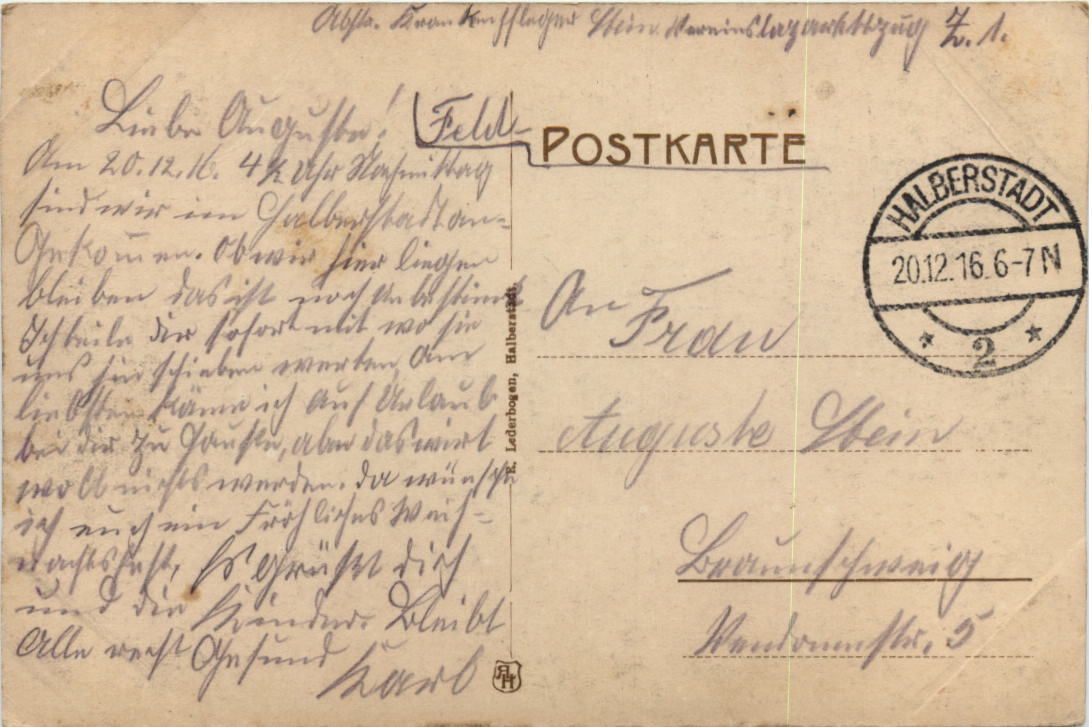 Abstr. Krankenpfleger Stein. Vereinslazarettzug Z. 1.
Liebe Auguste!
Am 20.12.16. 4½ Uhr Nachmittag
sind wir im Halberstadt an-
Gekommen. Ob wir hier liegen
bleiben das ist noch Unbestimmt
Ich teile dir sofort mit wo sie
uns hin schieben werden, Am
liebsten käme ich auf Urlaub
bei dir zu Hause, aber das wirt
wohl nichts werden. da wünsche
ich euch ein Fröhliches Weih-
nachtsfest, Es grüßt dich
und die Kinder. Bleibt
Alle recht Gesund
Karl
Feld-
POSTKARTE
HALBERSTADT
20.12.16.6-7N
* 2 *
An
Frau
Auguste Stein
Braunschweig
5
R. Lederbogen, Halberstadt.